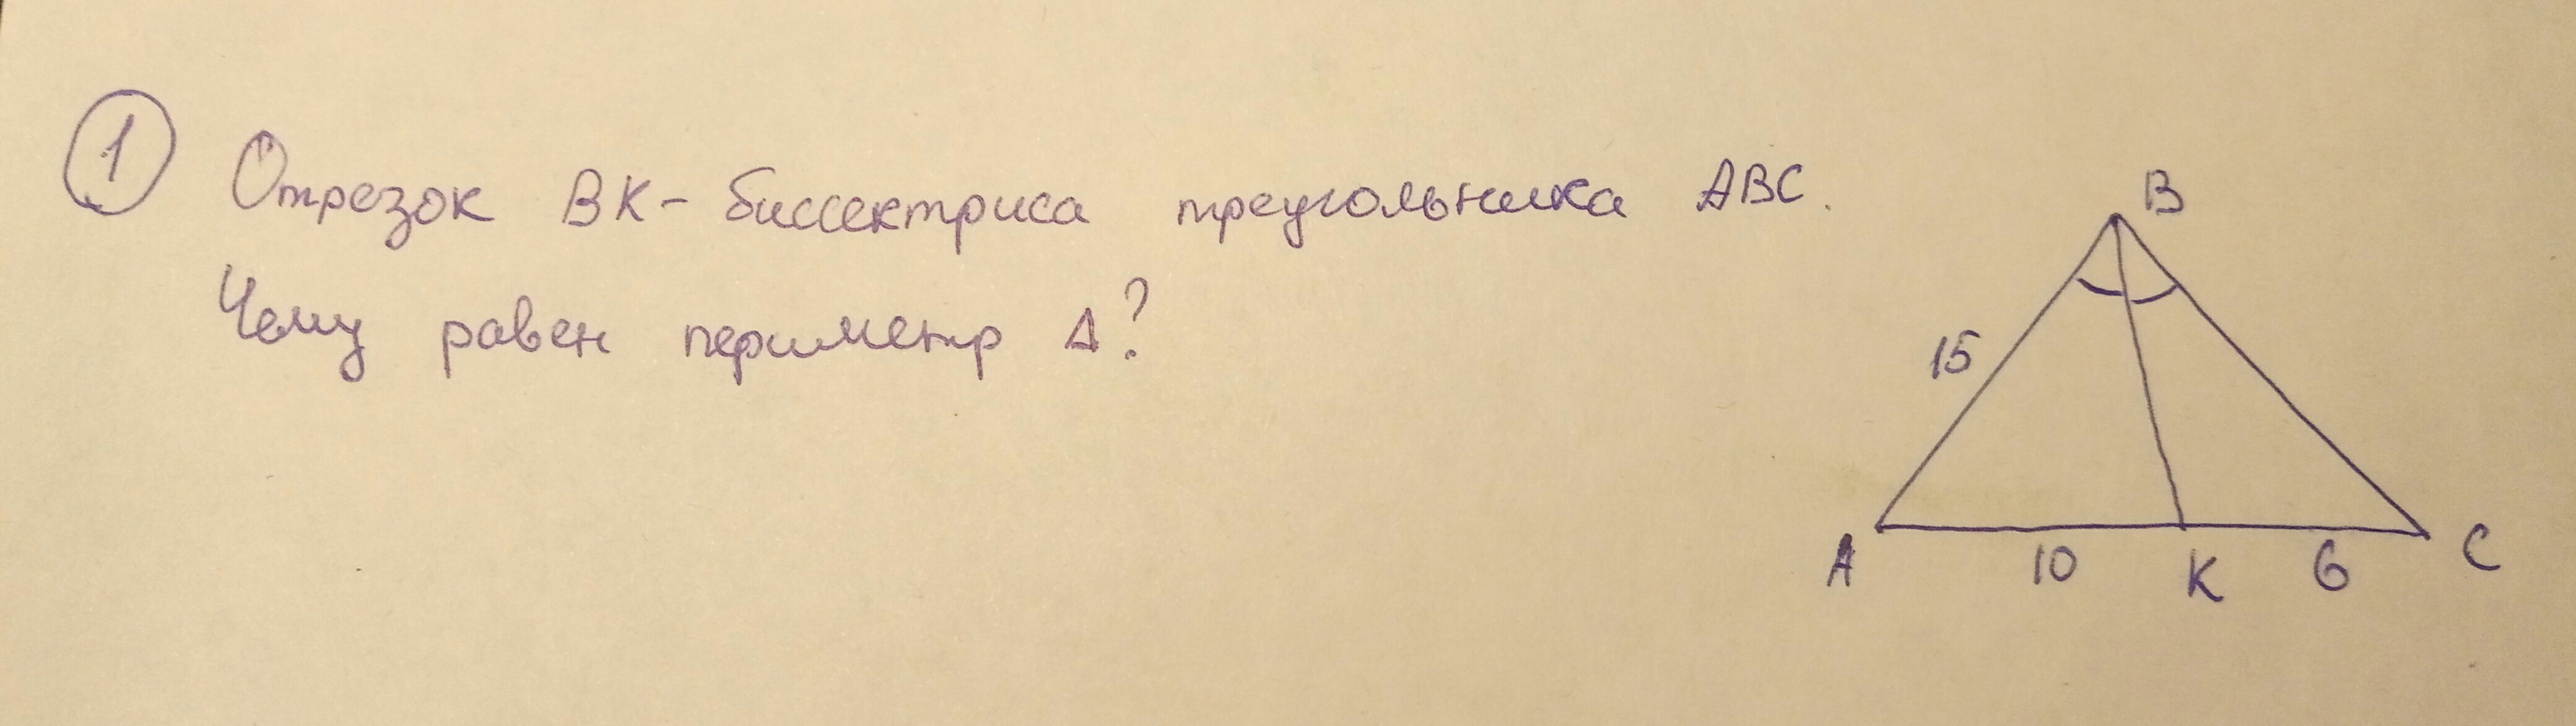 1 Отрезок BK - биссектриса треугольника ABC.
Чему равен периметр Δ?
B
15
A 10 K 6 C